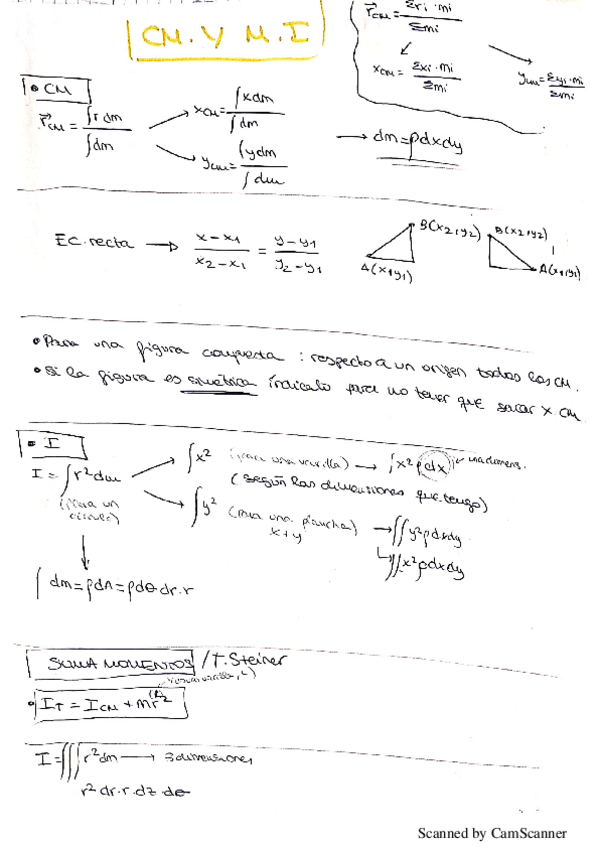 CM. Y M.I
r⃗CM = Σri·mi / Σmi
xCM = Σxi·mi / Σmi
yCM = Σyi·mi / Σmi
• CM
r⃗CM = ∫r dm / ∫dm
xCM = ∫xdm / ∫dm
yCM = ∫ydm / ∫dm
→ dm = ρdxdy
EC. recta → x-x1 / x2-x1 = y-y1 / y2-y1
B(x2,y2)
A(x1y1)
B(x2,y2)
A(x1,y1)
• Para una figura compuesta : respecto a un origen todos los CM.
• Si la figura es simétrica índicalo para no tener que sacar x CM
• I
I = ∫r²dm
(para un círculo)
∫x² (para una varilla) → ∫x²ρdx
(según las dimensiones que tengo)
∫y² (para una plancha) → ∫∫y²ρdxdy
x+y
∫∫x²ρdxdy
∫dm = ρdA = ρdθ dr.r
SUMA MOMENTOS / T. Steiner
• IT = ICM + mr²
I = ∫∫∫ r²dm → 3 dimensiones
r² dr.r.dz.dθ
Scanned by CamScanner